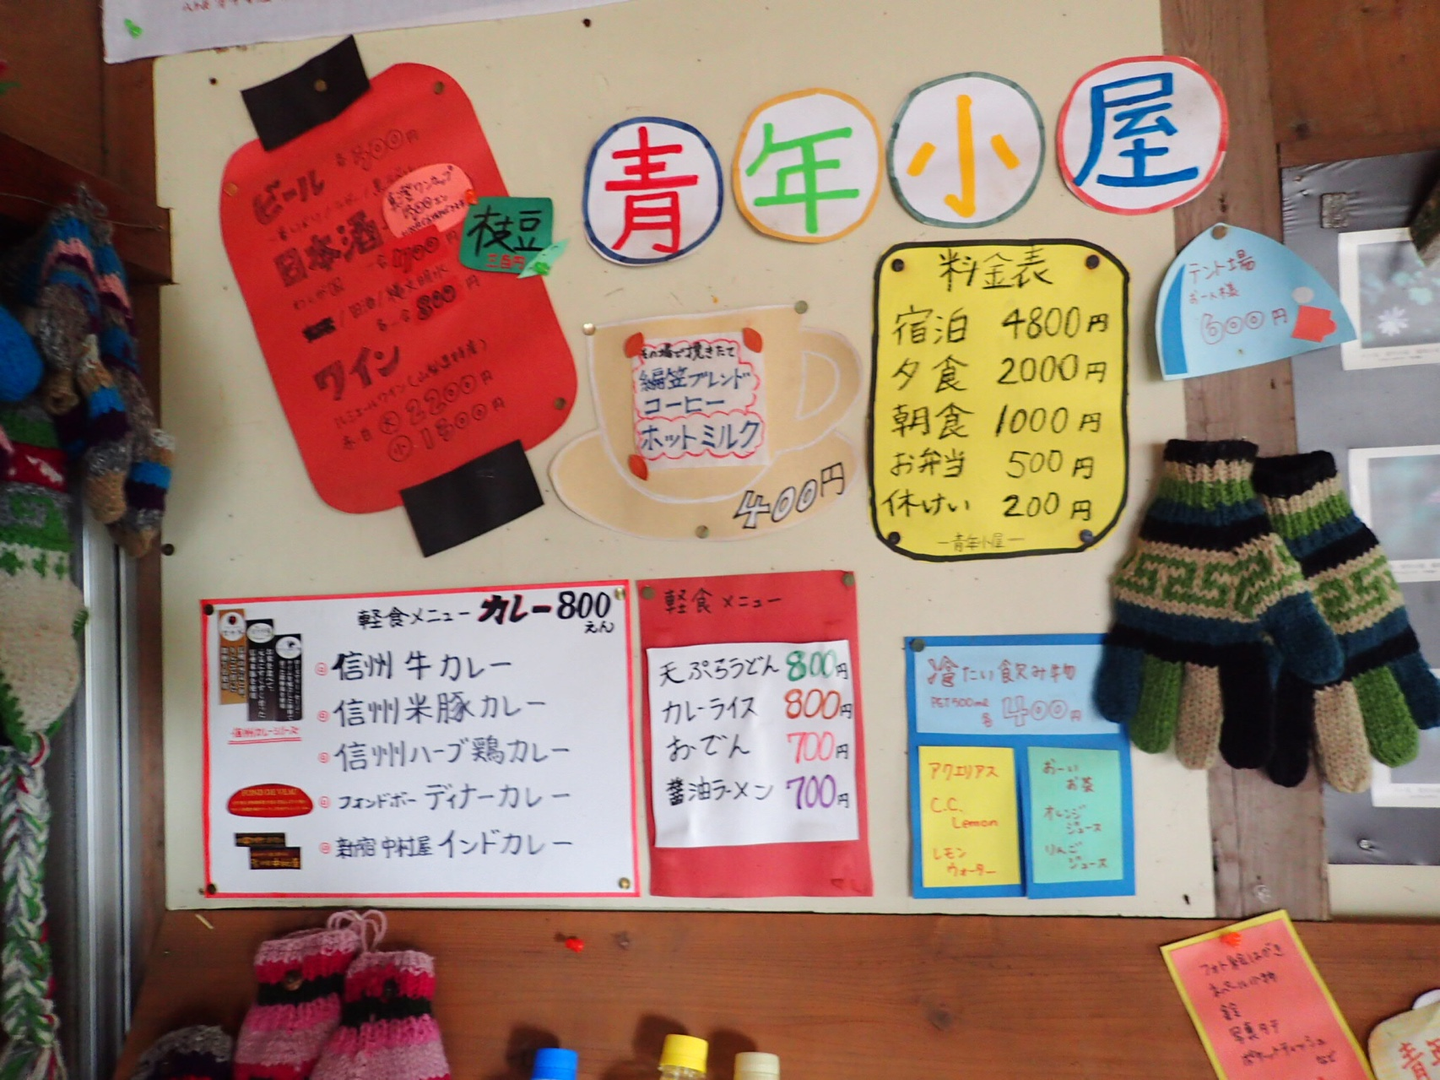 青年小屋
ビール 各800円
日本酒
各700円
各800円
ワイン
㊅ 2200円
㊙ 1300円
枝豆
三百円
その場で挽きたて
編笠ブレンド
コーヒー
ホットミルク
400円
料金表
宿泊 4800円
夕食 2000円
朝食 1000円
お弁当 500円
休けい 200円
―青年小屋―
テント場
お一人様
600円
軽食メニュー カレー800えん
信州 牛カレー
信州米豚カレー
信州ハーブ鶏カレー
フォンドボー ディナーカレー
新宿中村屋 インドカレー
信州カレーシリーズ
FOND DE VEAU
軽食メニュー
天ぷらうどん 800円
カレーライス 800円
おでん 700円
醤油ラーメン 700円
冷たい飲み物
PET500ml
各400円
アクエリアス
C.C.
Lemon
レモン
ウォーター
おーい
お茶
オレンジ
ジュース
りんご
ジュース
フォト絵はがき
ネパール小物
写真タテ
ポケットティッシュ
など
青年